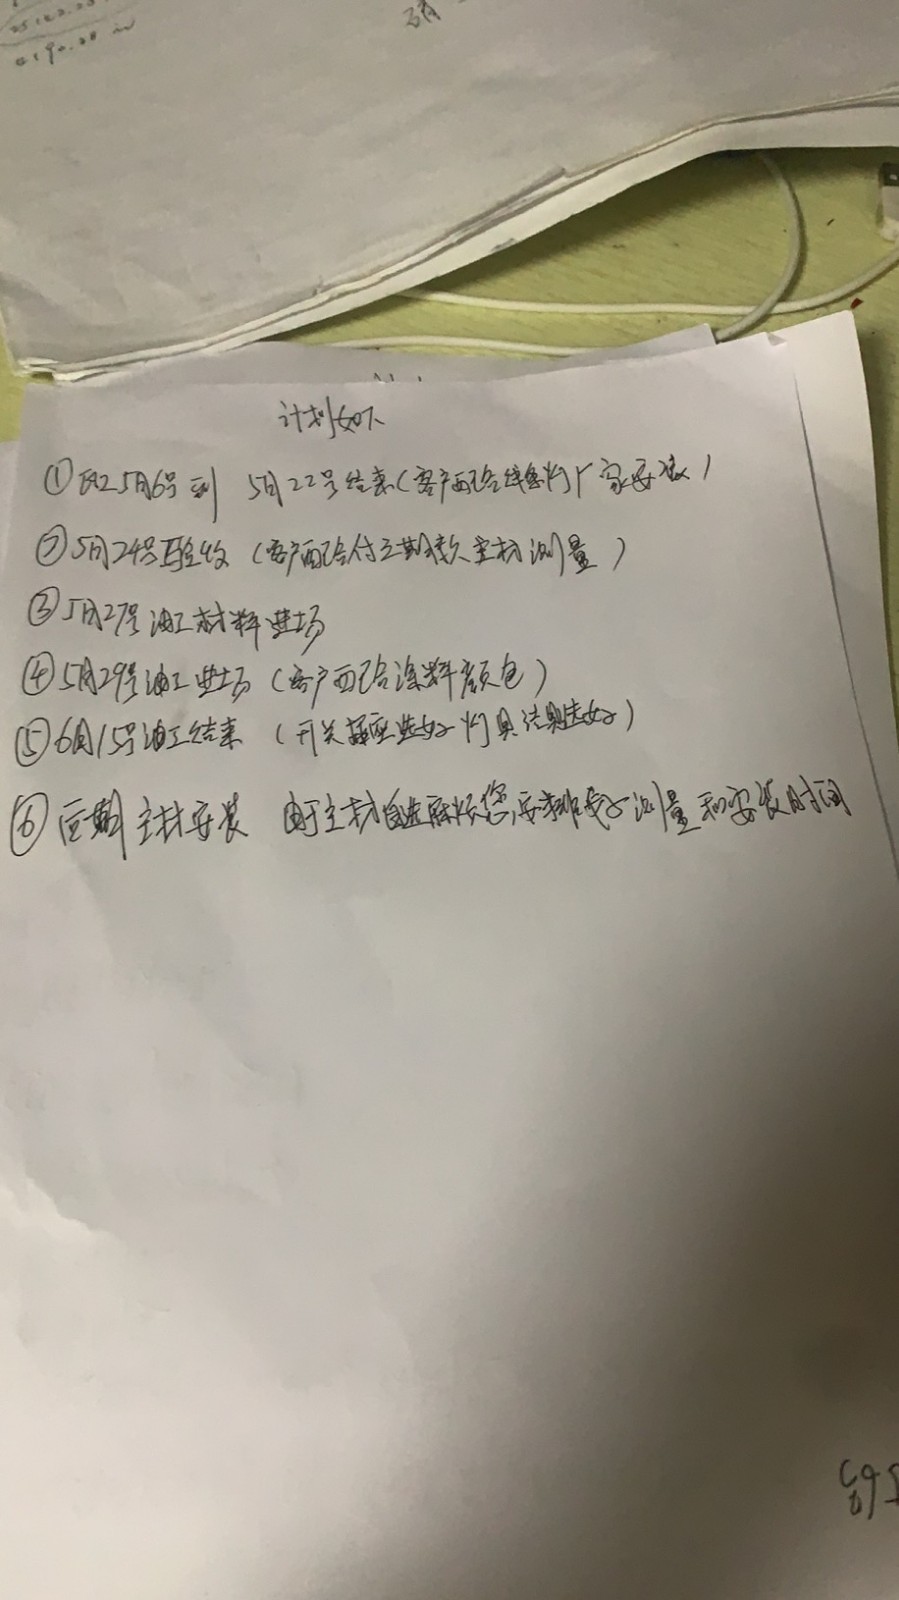 25162.25
6190.28
计划如下
①瓦工5月6号到 5月22号结束(客户配合线条灯厂家安装)
②5月24号验收(客户配合付三期款主材测量)
③5月27号油工材料进场
④5月29号油工进场(客户配合涂料颜色)
⑤6月15号油工结束(开关插座选好灯具洁具选好)
⑥后期主材安装 由于主材自选麻烦您安排好测量和安装时间